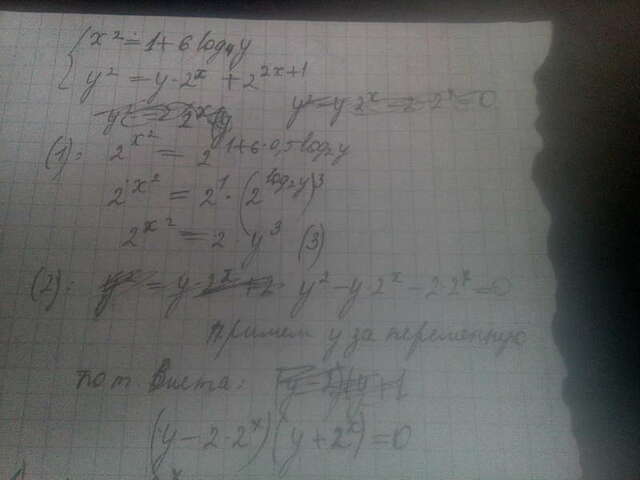 x² = 1 + 6 log₄ y
y² = y · 2ˣ + 2²ˣ⁺¹
y² – y 2ˣ – 2 · 2ˣ = 0
(1): 2^(x²) = 2^(1+6·0,5 log₂ y)
2^(x²) = 2¹ · (2^(log₂ y))³
2^(x²) = 2 · y³ (3)
(2): y² – y · 2ˣ – 2 · 2ˣ = 0
примем y за переменную
по т. Виета:
(y – 2 · 2ˣ)(y + 2ˣ) = 0